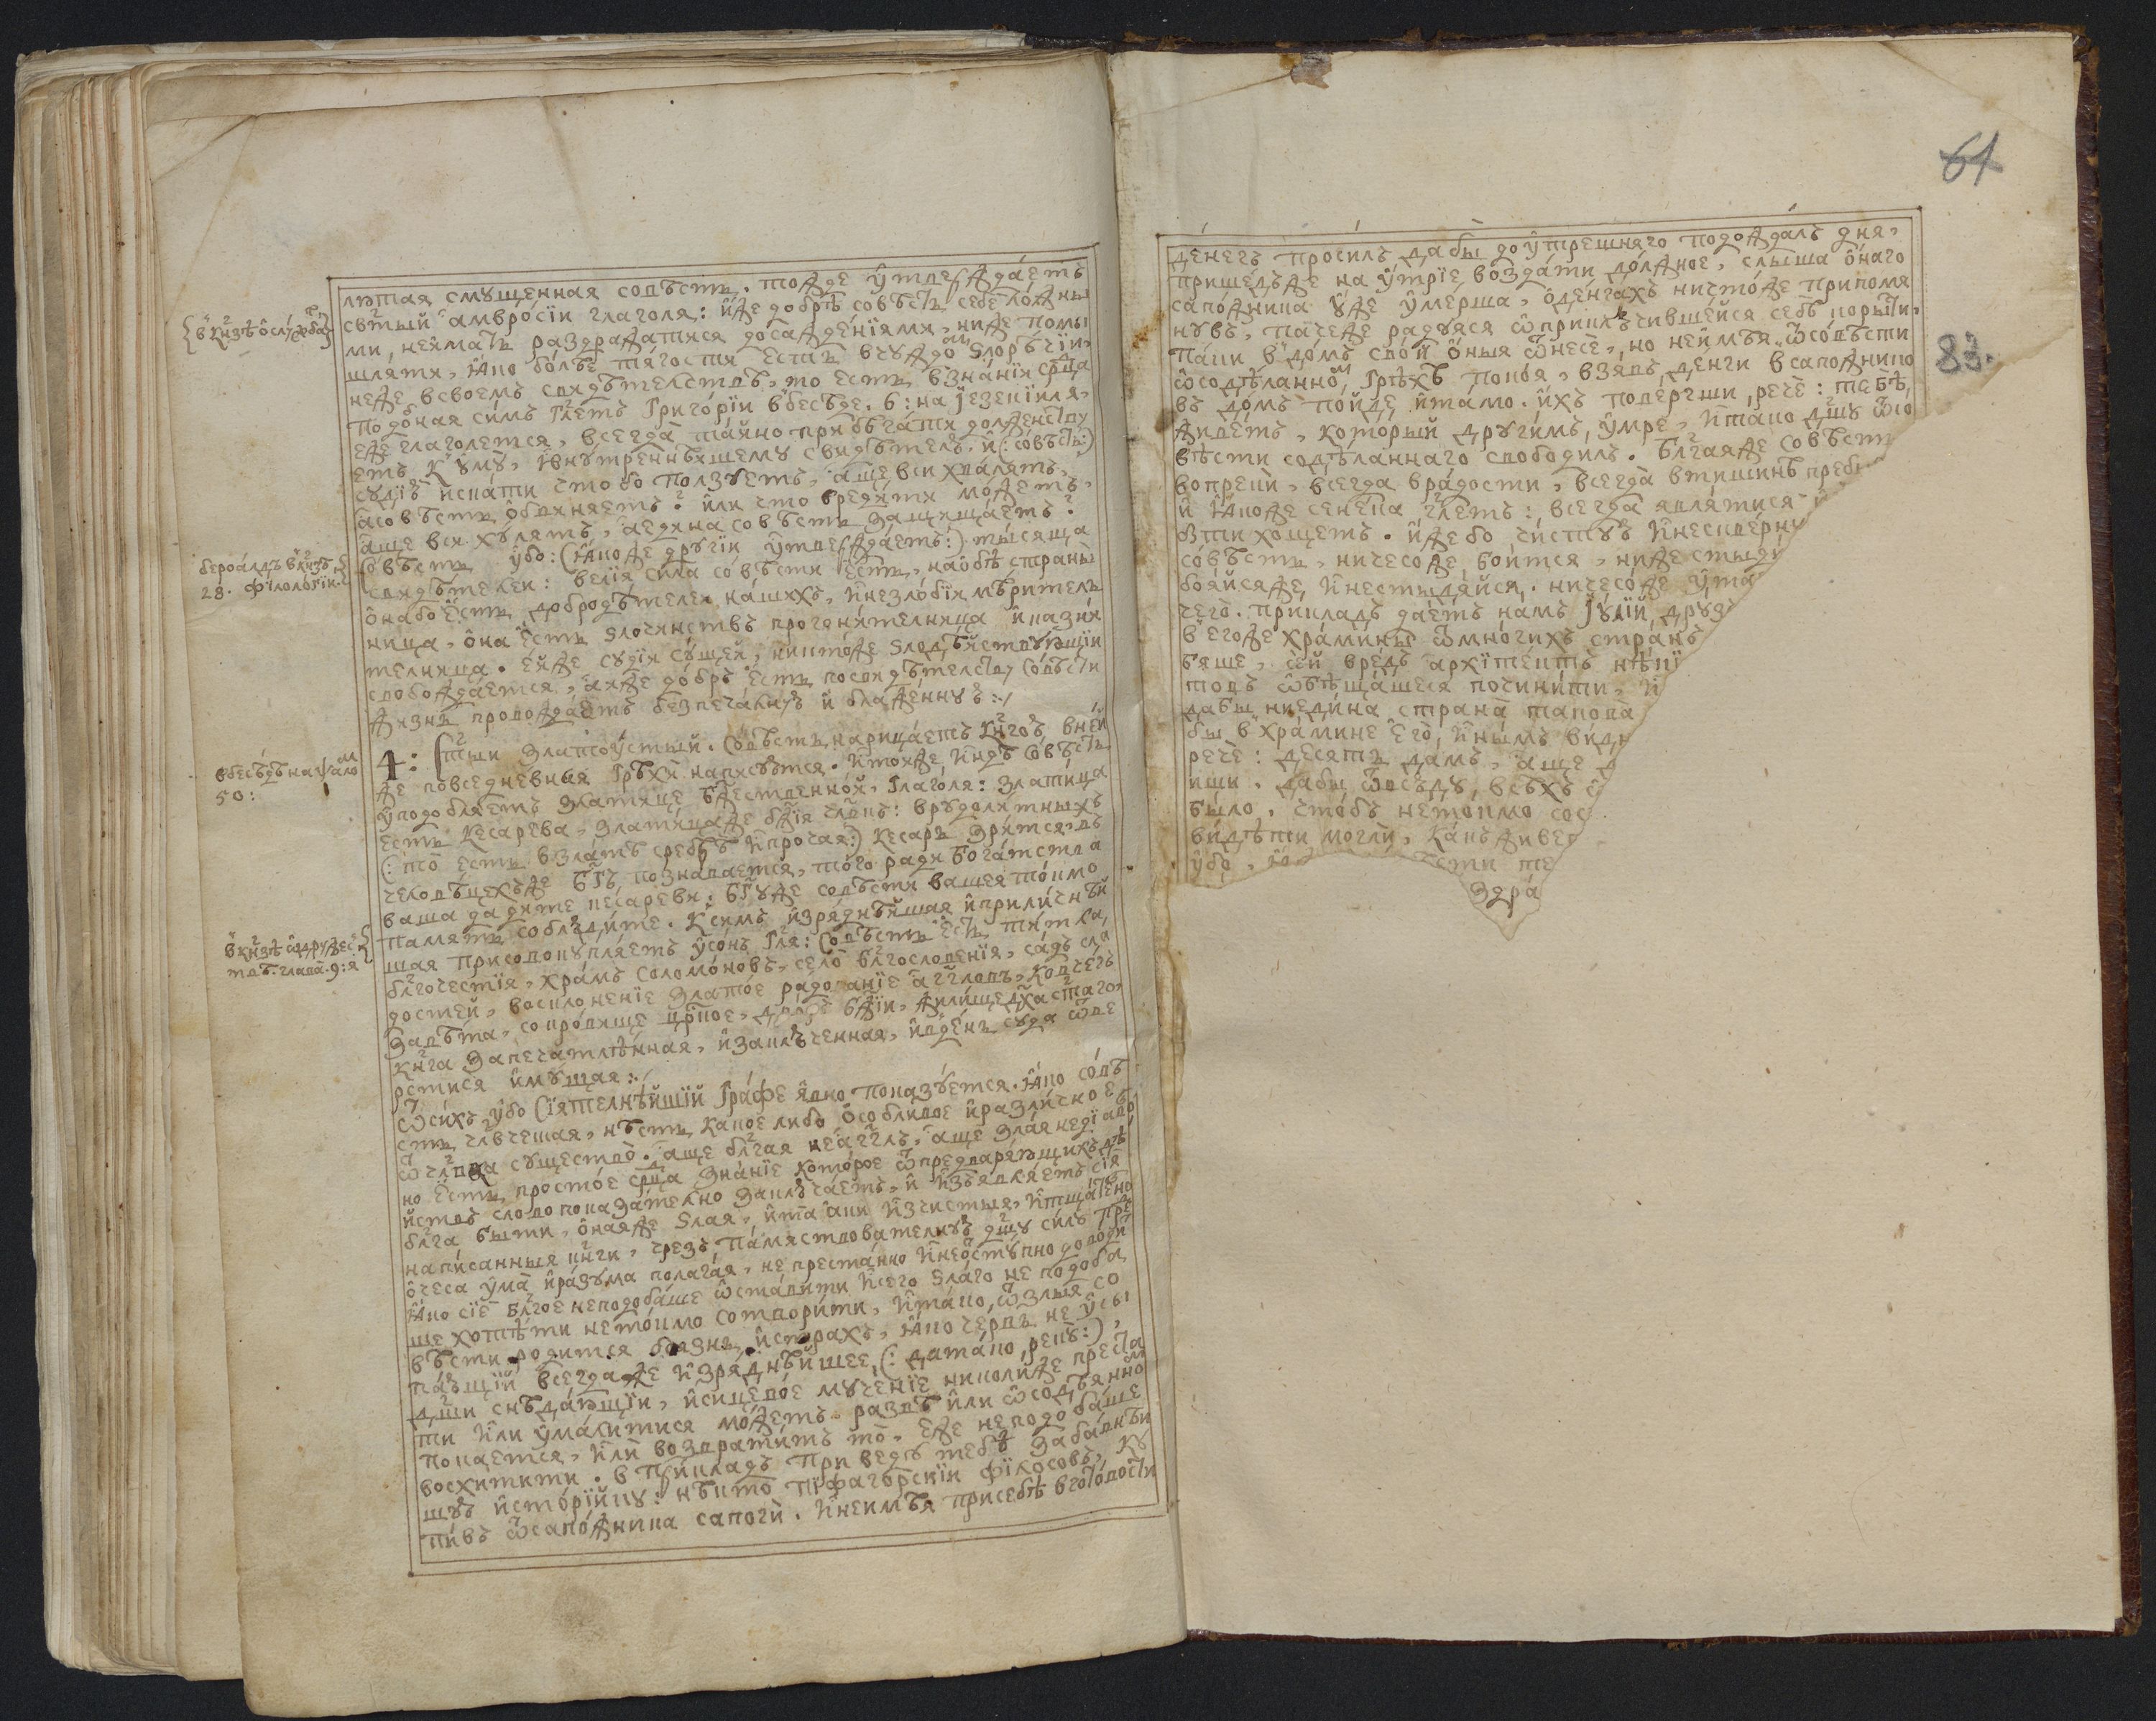 лютая смущенная совѣсть. тожде утверждаетъ
святый амвросіи глаголя: иже добрѣ совѣсть себе ложны
ми, неимать раздражатися досажденіями, ниже помы
шляти, яко болѣе тягости есть вчуждомъ злорѣчіи,
неже всвоемъ свидѣтелствѣ, то есть, взнаніи срдца
подобная симъ глетъ Григоріи вбесѣде. 6: на Іезекіиля,
еже глаголется, всегда тайно прибѣгати долженству
етъ к уму, внутреннѣишему свидѣтелъ, и (: совѣсть:)
судіѣ искати что бо ползуетъ, аще вси хвалятъ,
асовѣсть обвиняетъ? или что вредити можетъ,
аще вси хулятъ, аедина совѣсть защищаетъ?
совѣсть убо: (якоже другіи утверждаетъ:) тысяща
свидѣтелеи: велія сила совѣсти есть, наобѣ страны
она бо есть добродѣтелеи нашихъ, инезлобія мѣритель
ница, она есть злочинствъ прогонителница иказни
телница. еяже судіи сущей, никтоже злодѣиствующіи
свобождается, аиже добръ есть посвидѣтелству совѣсти
жизнь провождаетъ безпечалную и блаженную:/
4: Стыи Златоустыи. Совѣсть нарицаетъ Кнгою, внеи
же повседневныя грѣхи написуются. Итоиже, индѣ совѣсть
уподобляетъ златице бжественной, Глаголя: златица
есть Кесарева, златицаже бжія члвкъ: врудолитныхъ
(: то есть взлатѣ сребрѣ ипрочая:) Кесарь зрится, въ
человѣцехъже Бгъ познавается, того ради богатства
ваша дадите кесареви; Бгуже совѣсти вашея токмо
память соблюдите. Ксимъ изряднѣйшая иприличнѣй
шая присовокупляетъ усонъ гля: Совѣсть есть титла,
благочестія, храмъ соломоновъ, село блгословенія, садъ сла
достей, восклоненіе златое радованіе агглавъ, Ковчегъ
завѣта, сокровище црское, бжіи, жилищедха стаго,
книга запечатлѣнная, изаключенная, ивдень суда отве
рстися имущая:/
Осихъ убо Сіятелнѣйшій Графе явно показуется. Яко совѣ
сть члвческая, нѣсть какое либо особливое иразличное
от члвка существо. аще блгая неагглъ, аще злая недіаво
но есть простое срдца знаніе которое отпредваряющихъ дѣ
иствъ слово показателно заключаетъ, и изъявляетъ сія
блга быти, оная же злая, ита аки изчистыя, итщателно
написанныя кнги, чрезъ памятствователную дшу силъ пре
очеса ума иразума полагая, непрестанно инеотступно доводи
яко сіе блгое неподобаше оставити исего злаго не подоба
ше хотѣти нетокмо сотворити, итако, отзлыя со
вѣсти родится боязнь, истрахъ, яко червь не усы
пающій всегдаже изряднѣишее, (: датако реку:),
дши снѣдающіи, исицевое мученіе николиже преста
ти или умалитися можетъ развѣ или осодѣяннѡмъ
покается, или возвратитъ то, еже неподобаше
восхитити. в прикладъ приведу тебѣ забавнѣи
шую исторійку: нѣкто піфагорскіи філософъ, ку
пивъ отсапожника сапоги. инеимѣя присебѣ вготовости
{вкнзѣ ослужба}
бероалдъ вкнзѣ
28. філологіи.
вбесѣдѣ наѱалом
50:
вкнзѣ одружес
твѣ. глава. 9: я
61
денегъ просилъ дабы доутрешняго подождалъ дня,
пришедъже на утріе воздати должное, слыша онаго
сапожника уже умерша, оденгахъ никтоже припомя
нувъ, пачеже радуяся оприключившейся себѣ корысти,
паки вдомъ свой оныя отнесе, но неимѣя отсовѣсти
осодѣланномъ грѣхѣ покоя, взявъ денги всапожнико
въ домъ пойде итамо. ихъ повергши, рече: тебѣ,
живетъ, который другимъ, умре, итако дшу отсо
вѣсти содѣланнаго свободилъ. Блгаяже совѣсть
вопреки, всегда врадости, всегда втишинѣ преб
и якоже сенека глетъ: всегда являтися
вти хощетъ. иже бо чистую инескверну
совѣсть, ничесоже боится, ниже стыди
бояйсяже, инестыдяйся, ничесоже ута
чего. прикладъ даетъ намъ Іулій друз
вегоже храмины отмногихъ странъ
бяше, сей вредъ архітектъ нѣкі
товъ обѣщашеся починити, и
дабы ниедина страна такова
бы вхрамине его, инымъ видн
рече: десять дамъ, аще
ищи, дабы отвсюду, всѣхъ
было, чтобъ нетокмо сос
видѣти могли, какъ живе
убо, я сти те
здра
83.